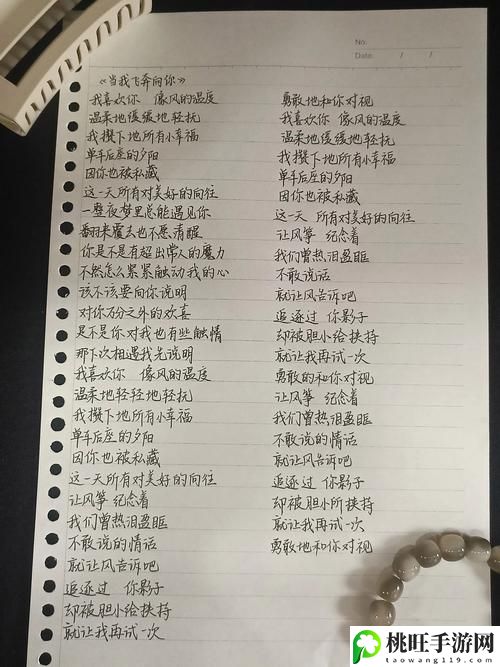 No.
Date: / /
《当我飞奔向你》
我喜欢你 像风的温度
温柔地缓缓地轻抚
我攒下地所有小幸福
单车后座的夕阳
因你也被私藏
这一天所有对美好的向往
一整夜梦里总能遇见你
翻来覆去也不愿清醒
你是不是有超出常人的魔力
不然怎么紧紧触动我的心
该不该要向你说明
对你万分之外的欢喜
是不是你对我也有些触情
那下次相遇我先说明
我喜欢你 像风的温度
温柔地轻轻地轻抚
我攒下地所有小幸福
单车后座的夕阳
因你也被私藏
这一天所有对美好的向往
让风筝 纪念着
我们曾热泪盈眶
不敢说的情话
就让风告诉吧
追逐过 你影子
却被胆小给挟持
就让我再试一次
勇敢地和你对视
我喜欢你 像风的温度
温柔地缓缓地轻抚
我攒下地所有小幸福
单车后座的夕阳
因你也被私藏
这一天 所有对美好的向往
让风筝 纪念着
我们曾热泪盈眶
不敢说话
就让风告诉吧
追逐过 你影子
却被胆小给挟持
就让我再试一次
勇敢的和你对视
让风筝 纪念着
我们曾热泪盈眶
不敢说的情话
就让风告诉吧
追逐过 你影子
却被胆小所挟持
就让我再试一次
勇敢地和你对视
桃旺手游网
taowang119.com